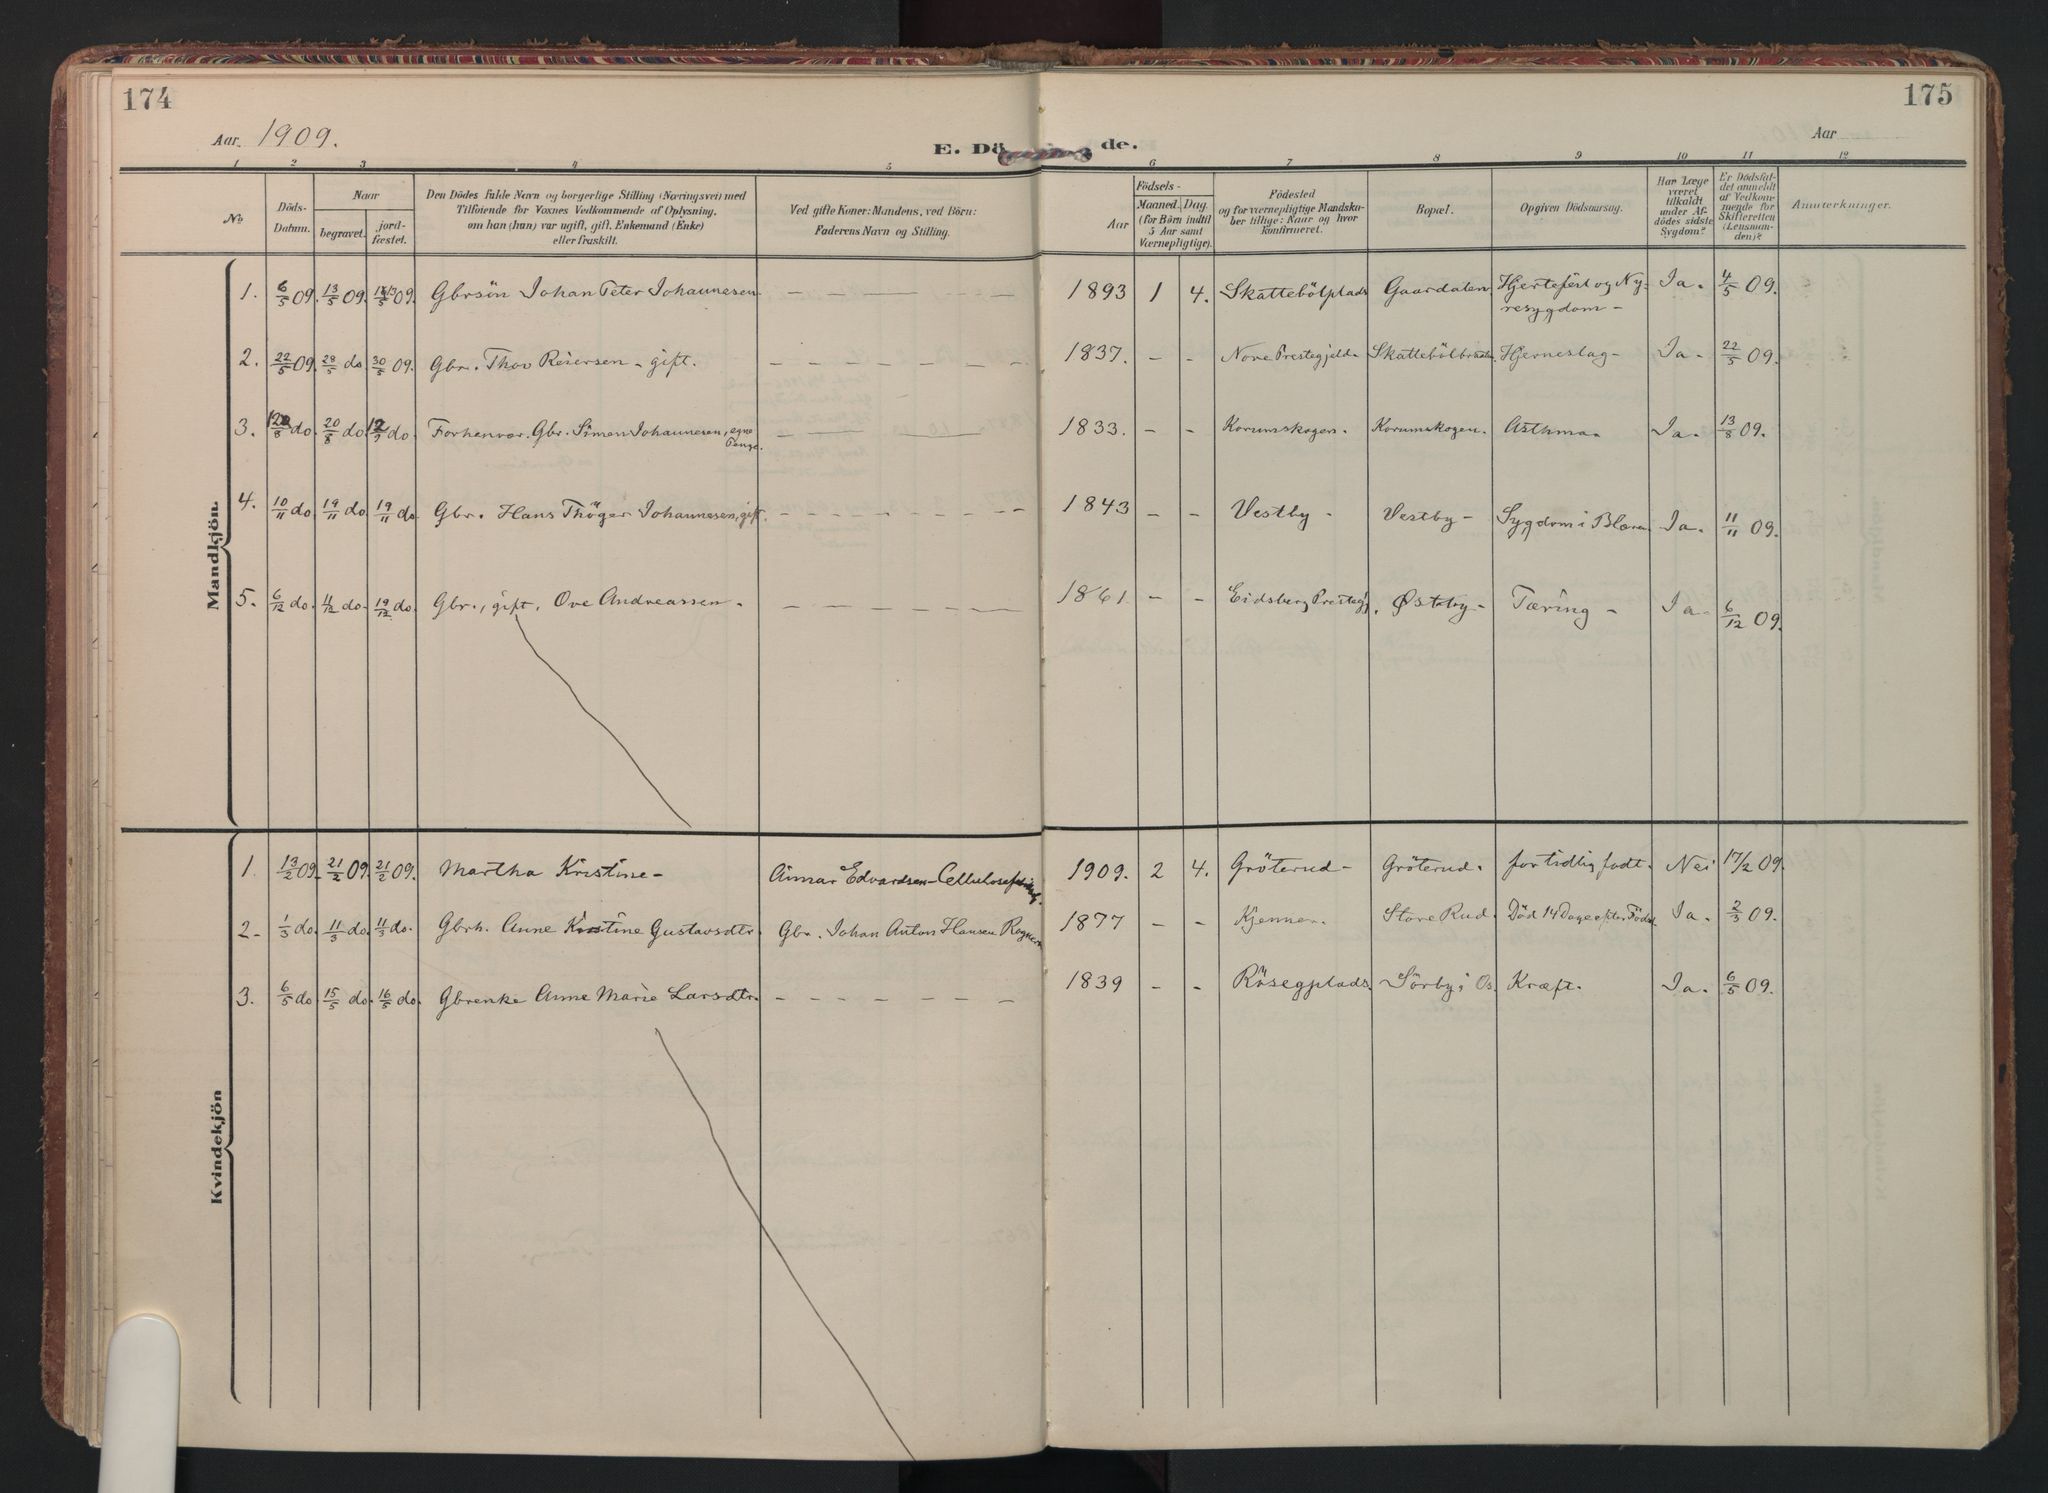 174
175
Aar. 1909.
E. Dö de.
Aar
1 2 3 4 5 6 7 8 9 10 11 12
No
Döds-Datum.
Naar
begravet.
jord-fæstet.
Den Dödes fulde Navn og borgerlige Stilling (Næringsvei) med
Tilföiende for Voxnes Vedkommende af Oplysning,
om han (hun) var ugift, gift, Enkemand (Enke)
eller fraskilt.
Ved gifte Koner: Mandens, ved Börn:
Faderens Navn og Stilling.
Födsels-
Aar
Maaned. Dag.
(for Börn indtil
5 Aar samt
Værnepligtige).
Födested
og for værnepligtige Mandska-
ber tillige: Naar og hvor
konfirmeret.
Bopæl.
Opgiven Dödsaarsag.
Har Læge
været
tilkaldt
under Af-
dödes sidste
Sygdom?
Er Dödsfal-
det anmeldt
af Vedkom-
mende for
Skifteretten
(Lensman-
den)?
Anmærkninger.
Mandkjön.
1. 6/5 09. 13/5 09. 13/5 09. Gbrsön Johan Peter Johannesen. — — — — — 1893 1 4. Skattebölplads Gaardalen. Hjertefeil og Ny-
resygdom — Ja. 4/5 09.
2. 22/5 09. 28/5 do. 30/5 09. Gbr. Thov Reiersen - gift. — — — — — 1837. - - Nore Prestegjeld - Hjerneslag - Ja - 22/5 09.
3. do. 20/8 do. do. Forhenvær. Gbr. Simen Johannesen, egne
Penge. — — — — 1833. - - Korumskogen. Korumskogen. Asthma. Ja. 13/8 09.
4. 10/11 do. 19/11 do. 19/11 do. Gbr. Hans Thöger Johannesen, gift. — — — — — 1843 - - Vestby - Vestby - Sygdom i Blæren Ja. 11/11 09.
5. 6/12 do. 11/12 do. 19/12 do. Gbr., gift, Ove Andreassen. — — — — 1861. - - Eidsberg Prestegj. Østeby - Tæring - Ja - 6/12 09.
Kvindekjön
1. 13/2 09. 21/2 09. 21/2 09. Martha Kristine - Einar Edvardsen - 1909. 2 4. Gröterud - Gröterud. for tidlig født. Nei 17/2 09.
2. 1/3 do. 11/3 do. 11/3 do. Gbrh. Anne Kristine Gustavsdtr. Gbr. Johan Anton Hansen 1877 - - Kjenner. Store Rud. Död 14 Dage efter Födsel Ja. 2/3 09.
3. 6/5 do. 15/5 do. 16/5 do. Gbrenke Anne Marie Larsdtr. — — — — — 1839 - - Rösegplads. Sörby i Os. Kræft. Ja. 6/5 09.